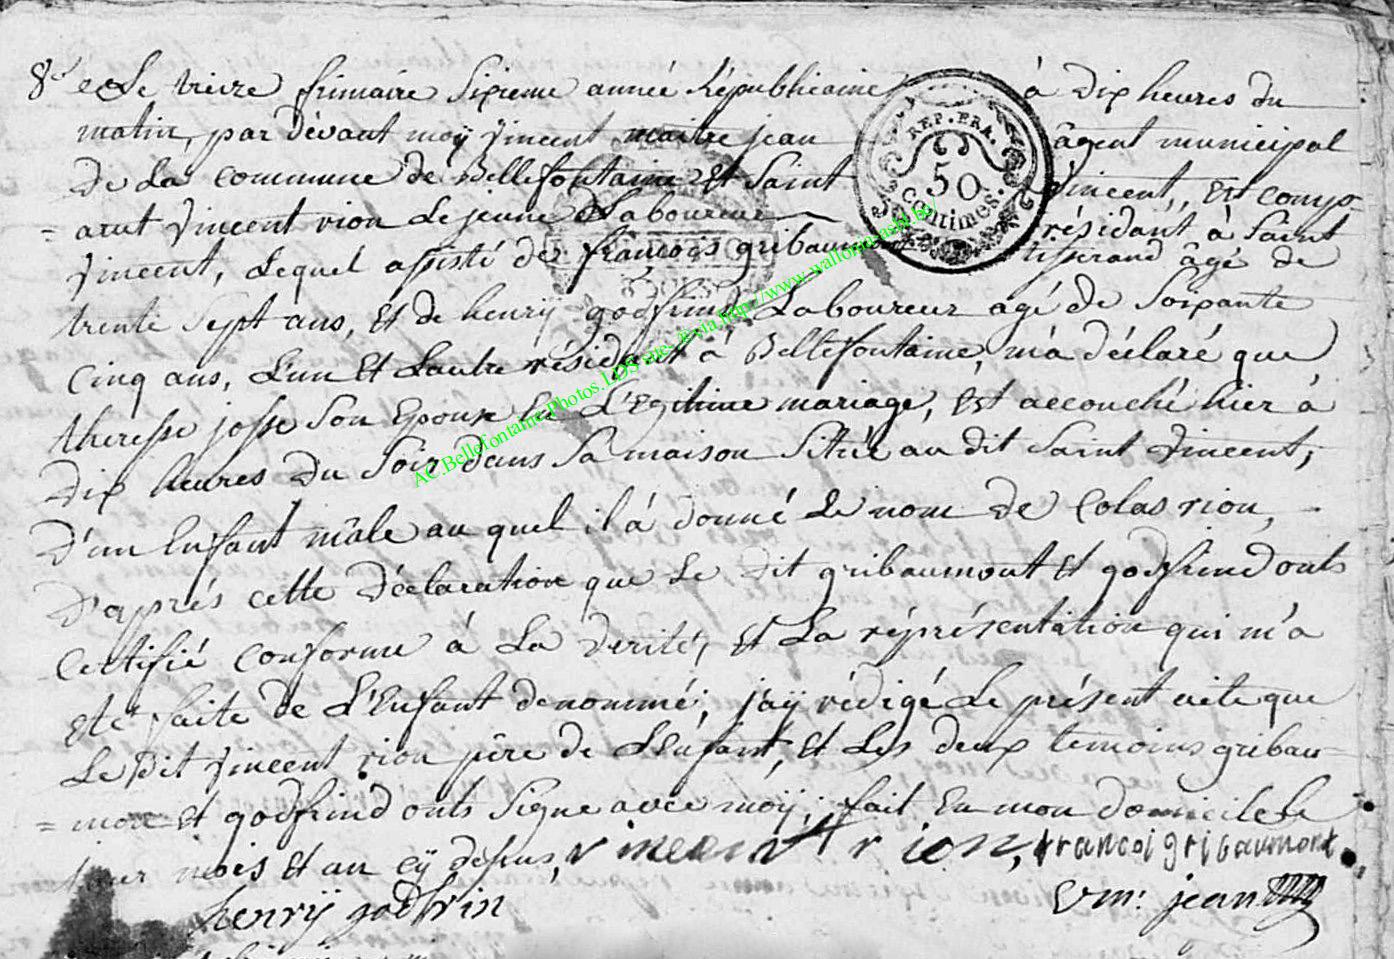 8e Le treize frimaire sixieme année Républicaine à dix heures du
matin, par dévant moÿ vincent maitre jean âgent municipal
de La commune de Bellefontaine et Saint vincent,, est comp
= arut vincent rion Le jeune Laboureur résidant à Saint
vincent, Lequel assisté de françois gribaumont tisserand âgé de
trente sept ans, et de henrÿ godfrind Laboureur agé de soixante
cinq ans, L'un et Lautre résident à Bellefontaine, m'a déclaré que
theresse josse son Epouse en L'Egitime mariage, est accouché hier à
dix heures du soir dans sa maison sitüée au dit Saint vincent,
d'un Enfant mâle au quel il á donné Le nom de Colas rion,
D'aprés cette déclaration que Le dit gribaumont et godfrind onts
certifié conforme à La verité, et La réprésentation qui m'a
eté faite de L'Enfant denommé; j'aÿ rédigé Le présent acte que
Le dit vincent rion pére de L'Enfant, et Les deux temoins gribau=
= mont et godfrind onts signe avec moÿ; fait en mon domicile Le
jour mois et an cÿ dessus, vincent rion, francoi gribaumont
henrÿ godfrin vm: jean
REP. FRA.
50
Centimes.
AC.Bellefontaine.Photos.LDS via http://www.wallonica.be/